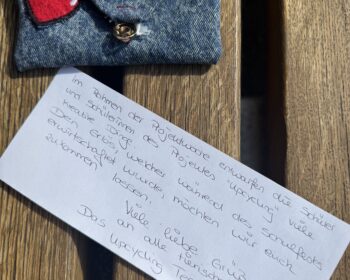 Im Rahmen der Projektwoche entwarfen die Schüler
und Schülerinnen des Projektes Upcycling viele
kreative Dinge.
Den Erlös, welcher während des Schulfests
erwirtschaftet wurde, möchten wir euch
zukommen lassen.
Viele liebe Grüße
Das an alle
Upcycling